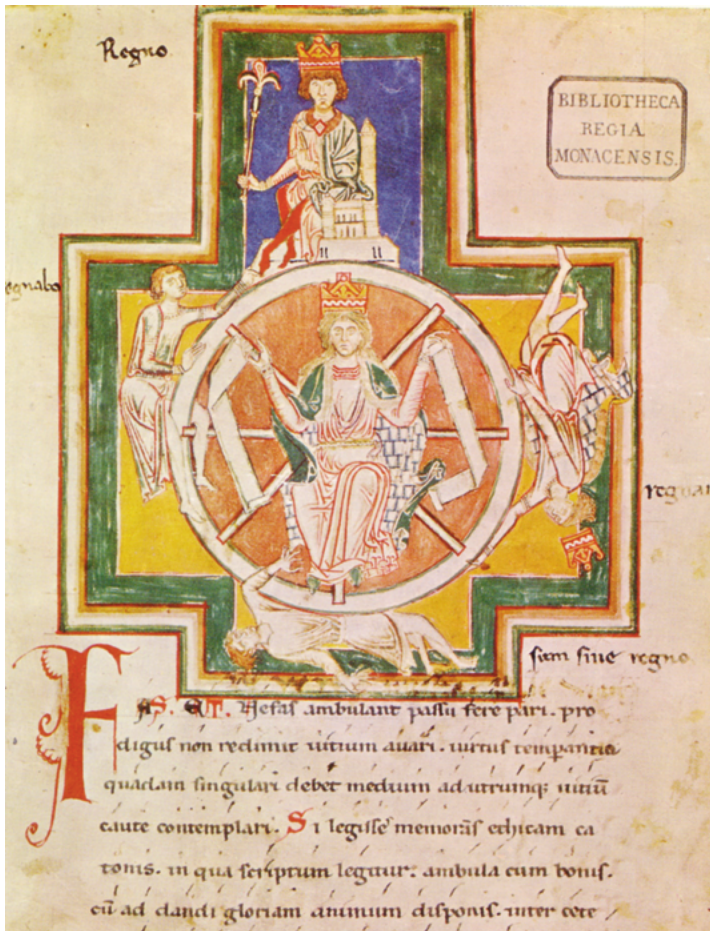 Regno
BIBLIOTHECA
REGIA
MONACENSIS.
egnabo
regnaui
sum sine regno
FAS. ET. Nefas ambulant passu fere pari. pro
digus non redimit uitium auari. uirtus temperantia
quadam singulari debet medium ad utrumque uitiū
caute contemplari. Si legisse memoras ethicam ca
tonis. in qua scriptum legitur. ambula cum bonis.
cū ad dandi gloriam animum disponis. inter cete